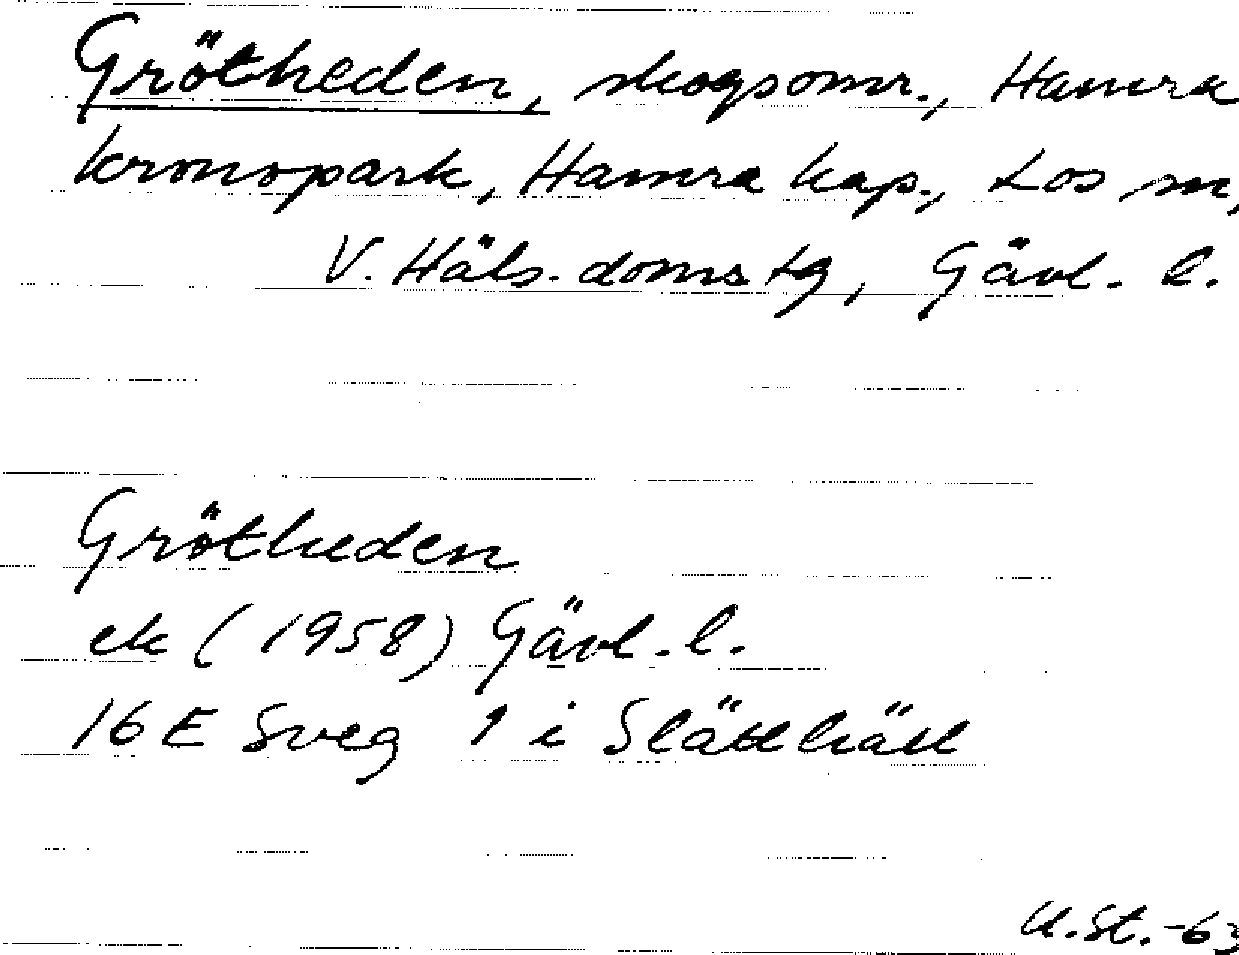 Grötheden, skogsomr., Hamra
kronopark, Hamra kap., Los sn,
V. Häls. domstg, Gävl. l.
Grötheden
ek (1958) Gävl. l.
16 E Sveg 1 i Slätthätt
U.St.-63